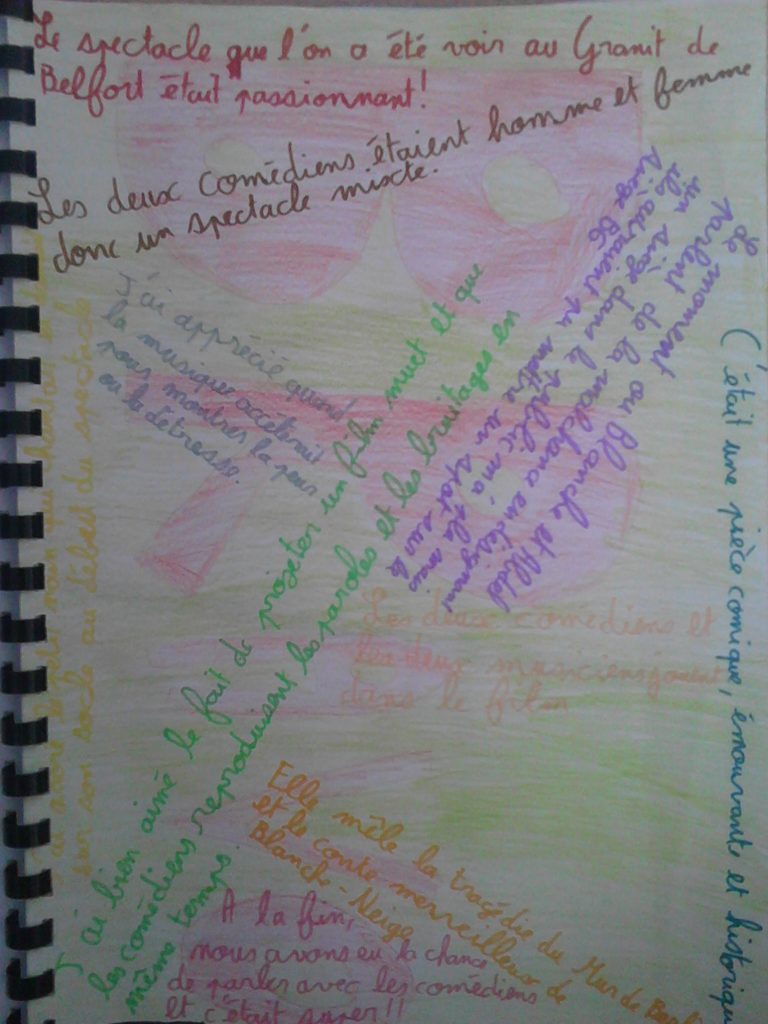 Le spectacle que l'on a été voir au Granit de
Belfort était passionnant!
Les deux comédiens étaient homme et femme
donc un spectacle mixte.
J'ai apprécié quand
la musique accélérait
pour montrer la peur
ou la détresse.
J'ai bien aimé le fait de projeter un film muet et que
les comédiens reproduisent les paroles et les bruitages en
même temps.
Le moment ou Blanche et
parlent de la
un siège dans le public m'a plu mais
ils auraient pu mettre un spot sur le
siège 66
C'était une pièce comique, émouvante et historique
Les deux comédiens et
les deux musiciens jouent
dans le film
Elle mêle la tragédie du Mur de Berlin
et le conte merveilleux de
Blanche-Neige
sur son socle au début du spectacle
A la fin,
nous avons eu la chance
de parler avec les comédiens
et c'était super!!